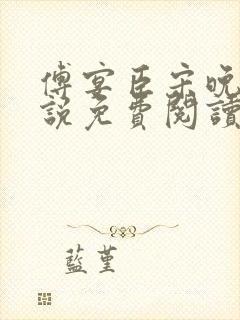 傅宴臣宋晚
說免費閱讀
藍堇